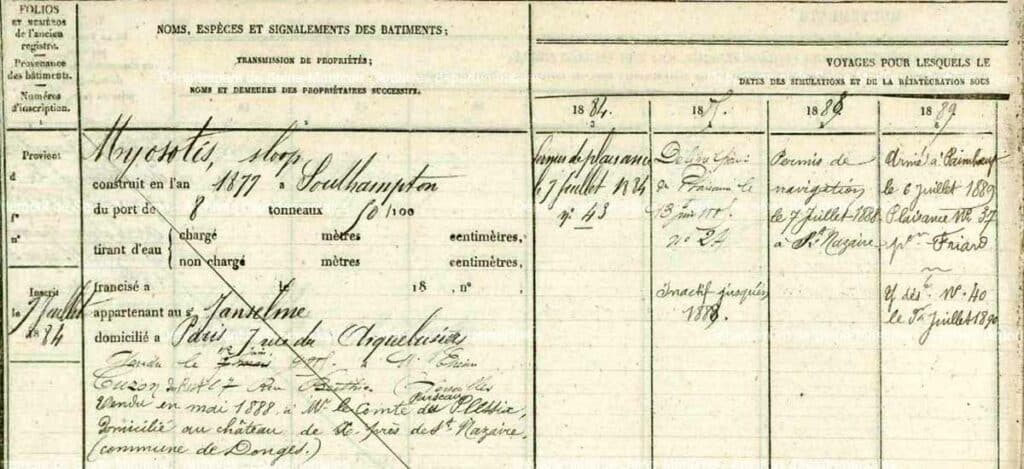 FOLIOS
ET NUMÉROS
de l'ancien
registre.
Provenance
des bâtiments.
Numéros
d'inscription.
NOMS, ESPÈCES ET SIGNALEMENTS DES BATIMENTS;
TRANSMISSION DE PROPRIÉTÉS;
NOMS ET DEMEURES DES PROPRIÉTAIRES SUCCESSIFS.
VOYAGES POUR LESQUELS LE
DATES DES SIMULATIONS ET DE LA RÉINTÉGRATION SOUS
1884
188
1888
1889
Provient
d
f°
n°
Inscrit
le 7 Juillet
1884
Myosotis, sloop
construit en l'an 1877 à Southampton
du port de 8 tonneaux 50/100
tirant d'eau { chargé mètres centimètres,
non chargé mètres centimètres,
francisé à le 18 n°
appartenant au sr Janselme
domicilié à Paris 7 rue du
Vendu le à Mr
Cuzon
Vendu en mai 1888 à Mr le Comte du Plessix,
domicilié au château de près de St Nazaire,
(commune de Donges.)
Permis de plaisance
le 7 juillet 1884
n° 43
13 juin
n° 24
Inactif jusqu'en
1888
Permis de
navigation
le 7 Juillet 1888
à St Nazaire
Armé à Paimbœuf
le 6 juillet 1889
Plaisance N° 37
pon Friard
N° 40
le Juillet 1890